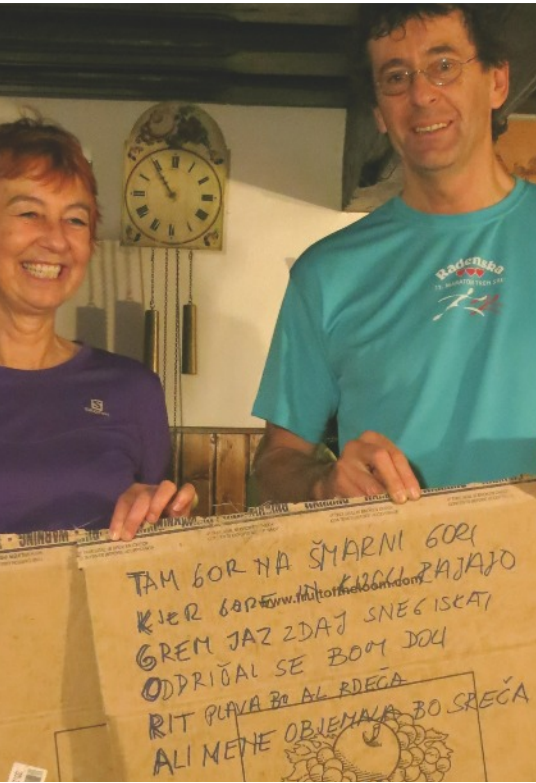 Radenska
WARNING
TAM GOR NA ŠMARNI GORI
KJER GORE IN RAJAJO
www.fruitoftheloom.com
GREM JAZ ZDAJ SNEG ISKAT
ODDRIČAL SE BOM DOU
RIT PLAVA BO AL RDEČA
ALI MENE OBJEMALA BO SREČA